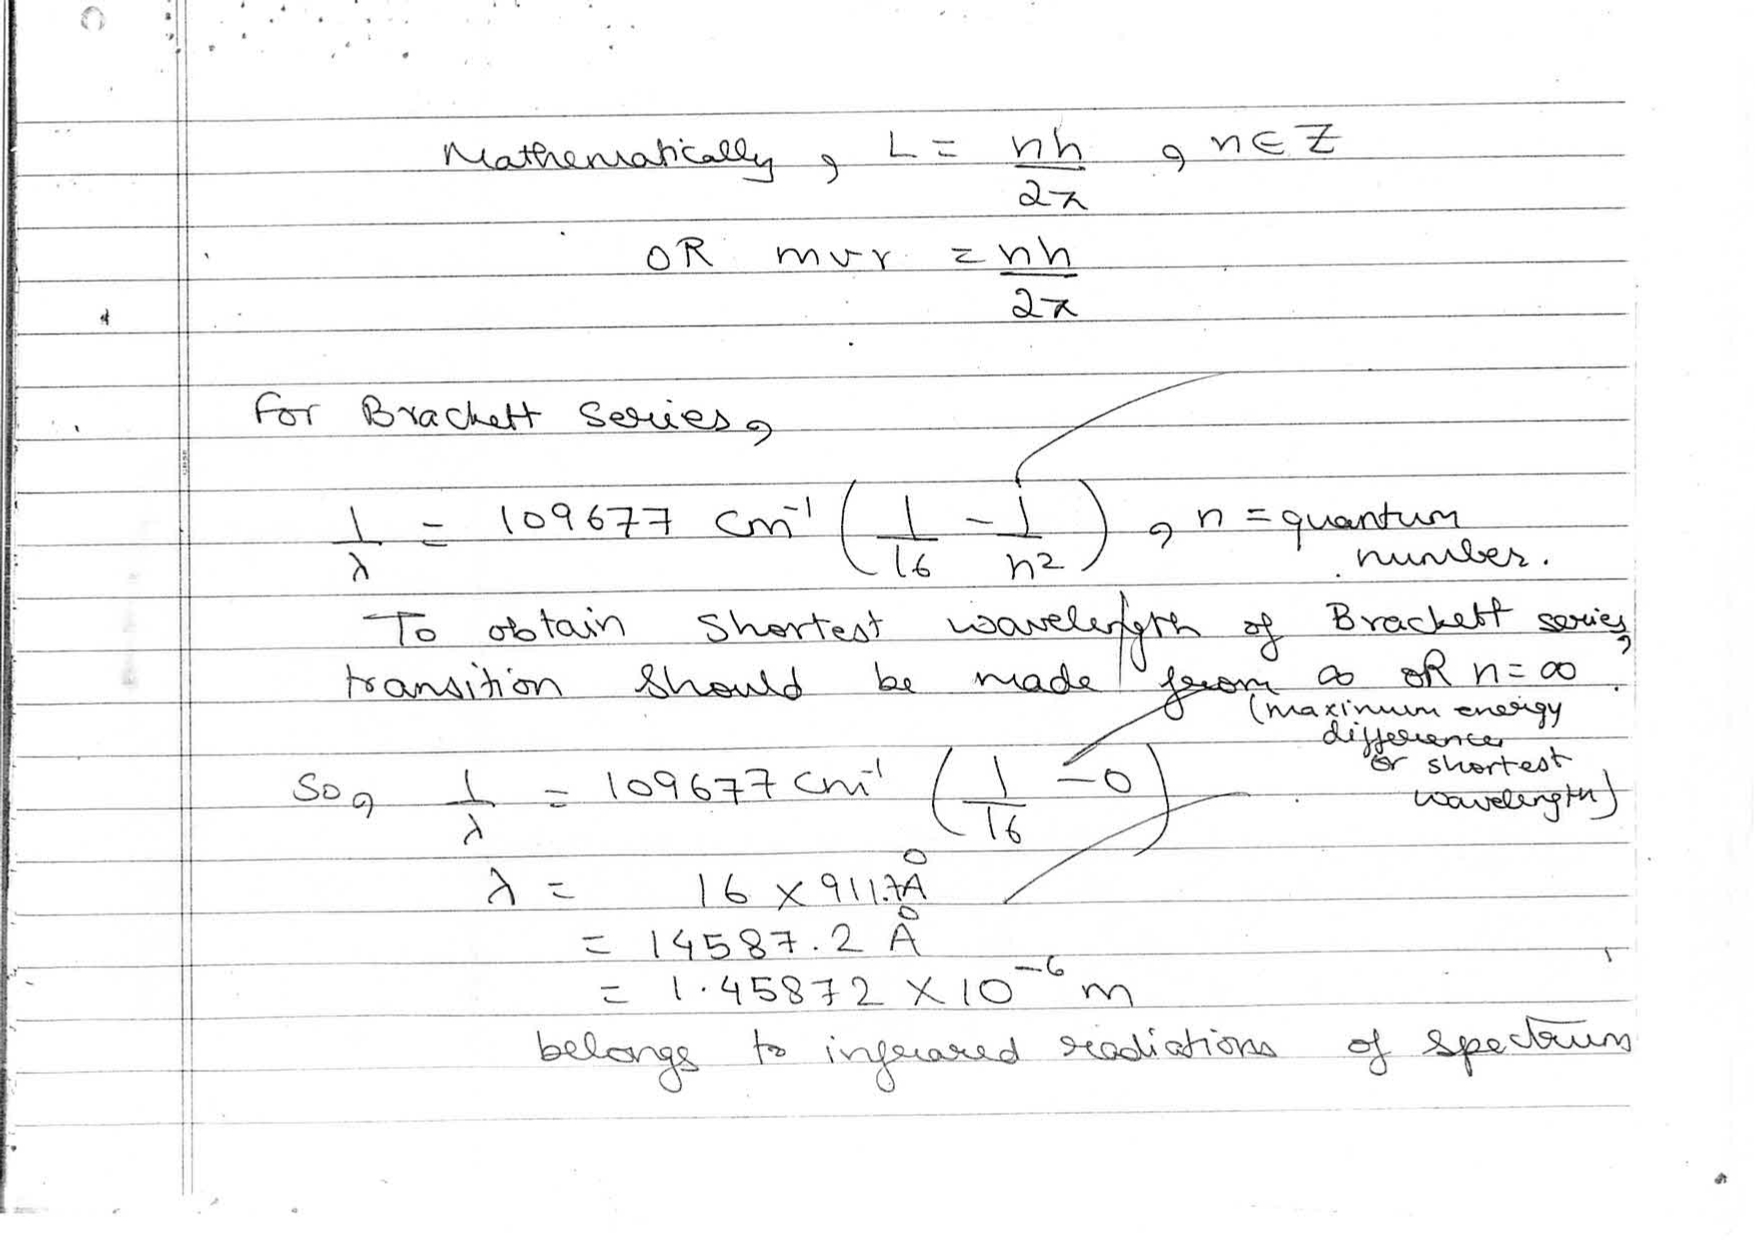 Mathematically, L = nh/2π, n∈Z
OR mvr = nh/2π
For Brackett Series,
1/λ = 109677 cm⁻¹ (1/16 - 1/n²), n = quantum
number.
To obtain shortest wavelength of Brackett series,
transition should be made from ∞ OR n=∞.
(maximum energy
difference
or shortest
wavelength)
So, 1/λ = 109677 cm⁻¹ (1/16 - 0)
λ = 16 × 911.7Å
= 14587.2 Å
= 1.45872 × 10⁻⁶ m
belongs to infrared radiations of spectrum